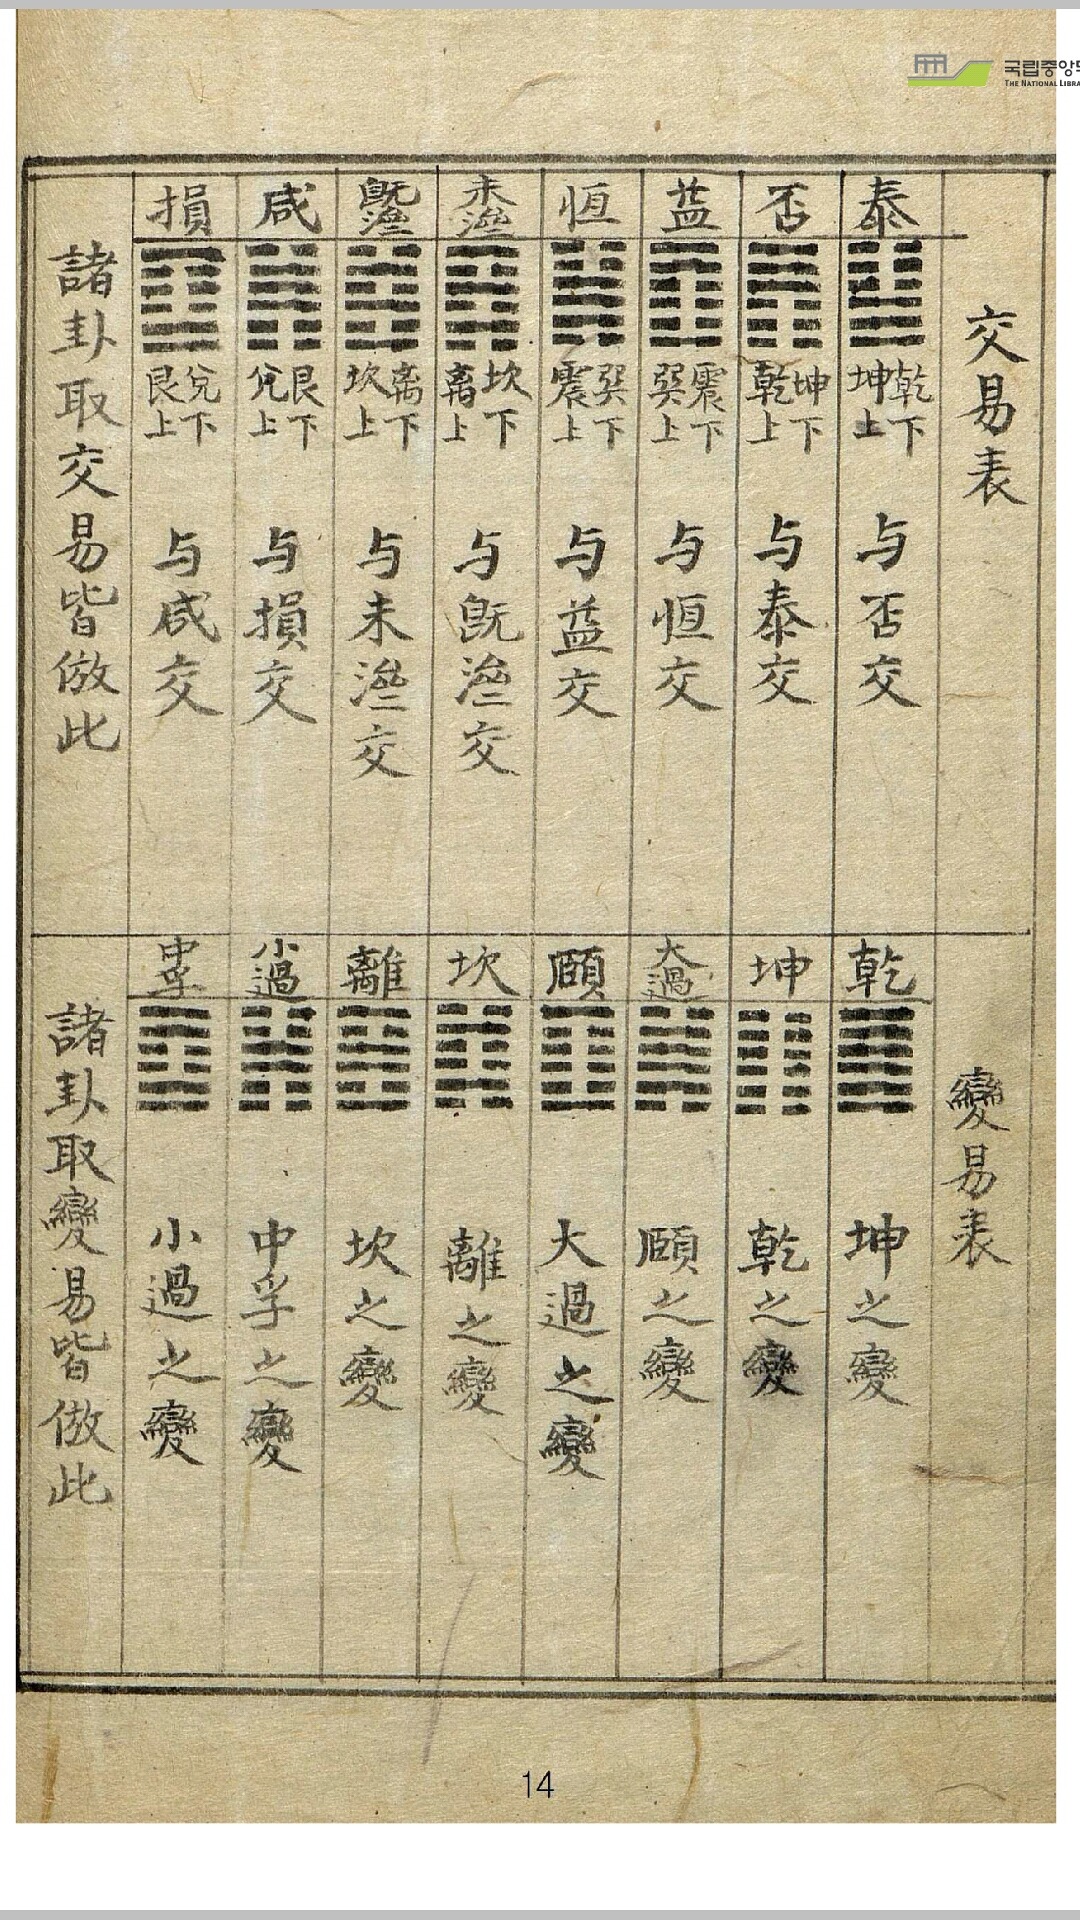 국립중앙
THE NATIONAL LIBRA
交易表
泰
坤上乾下
与否交
否
乾上坤下
与泰交
益
巽上震下
与恒交
恒
震上巽下
与益交
未濟
离上坎下
与既濟交
既濟
坎上离下
与未濟交
咸
兌上艮下
与損交
損
艮上兌下
与咸交
諸卦取交易皆倣此
變易表
乾
坤之變
坤
乾之變
大過
頤之變
頤
大過之變
坎
離之變
離
坎之變
小過
中孚之變
中孚
小過之變
諸卦取變易皆倣此
14